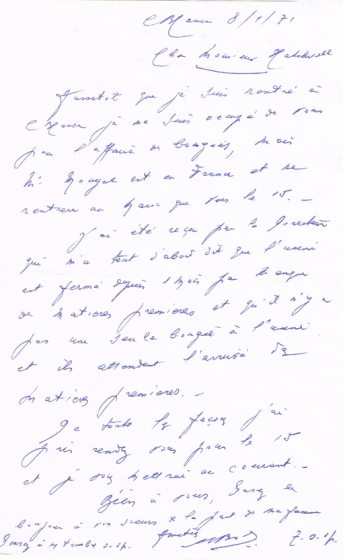 8/1/71
Cher Monsieur
Aussitôt que je suis rentré à
je me suis occupé de vous
pour l'affaire de bougies, mais
Mr. est en France et ne
rentrera au que vers le 15 -
J'ai été reçu par le Directeur
qui m'a tout d'abord dit que l'usine
est fermée depuis 1 mois par manque
de matières premières et qu'il n'y a
pas une seule bougie à l'usine
et ils attendent l'arrivée de
matières premières. -
De toute les façons j'ai
pris rendez vous pour le 15
et je vous mettrai au courant. -
Bien à vous,
bonjour à vos de la part de ma femme